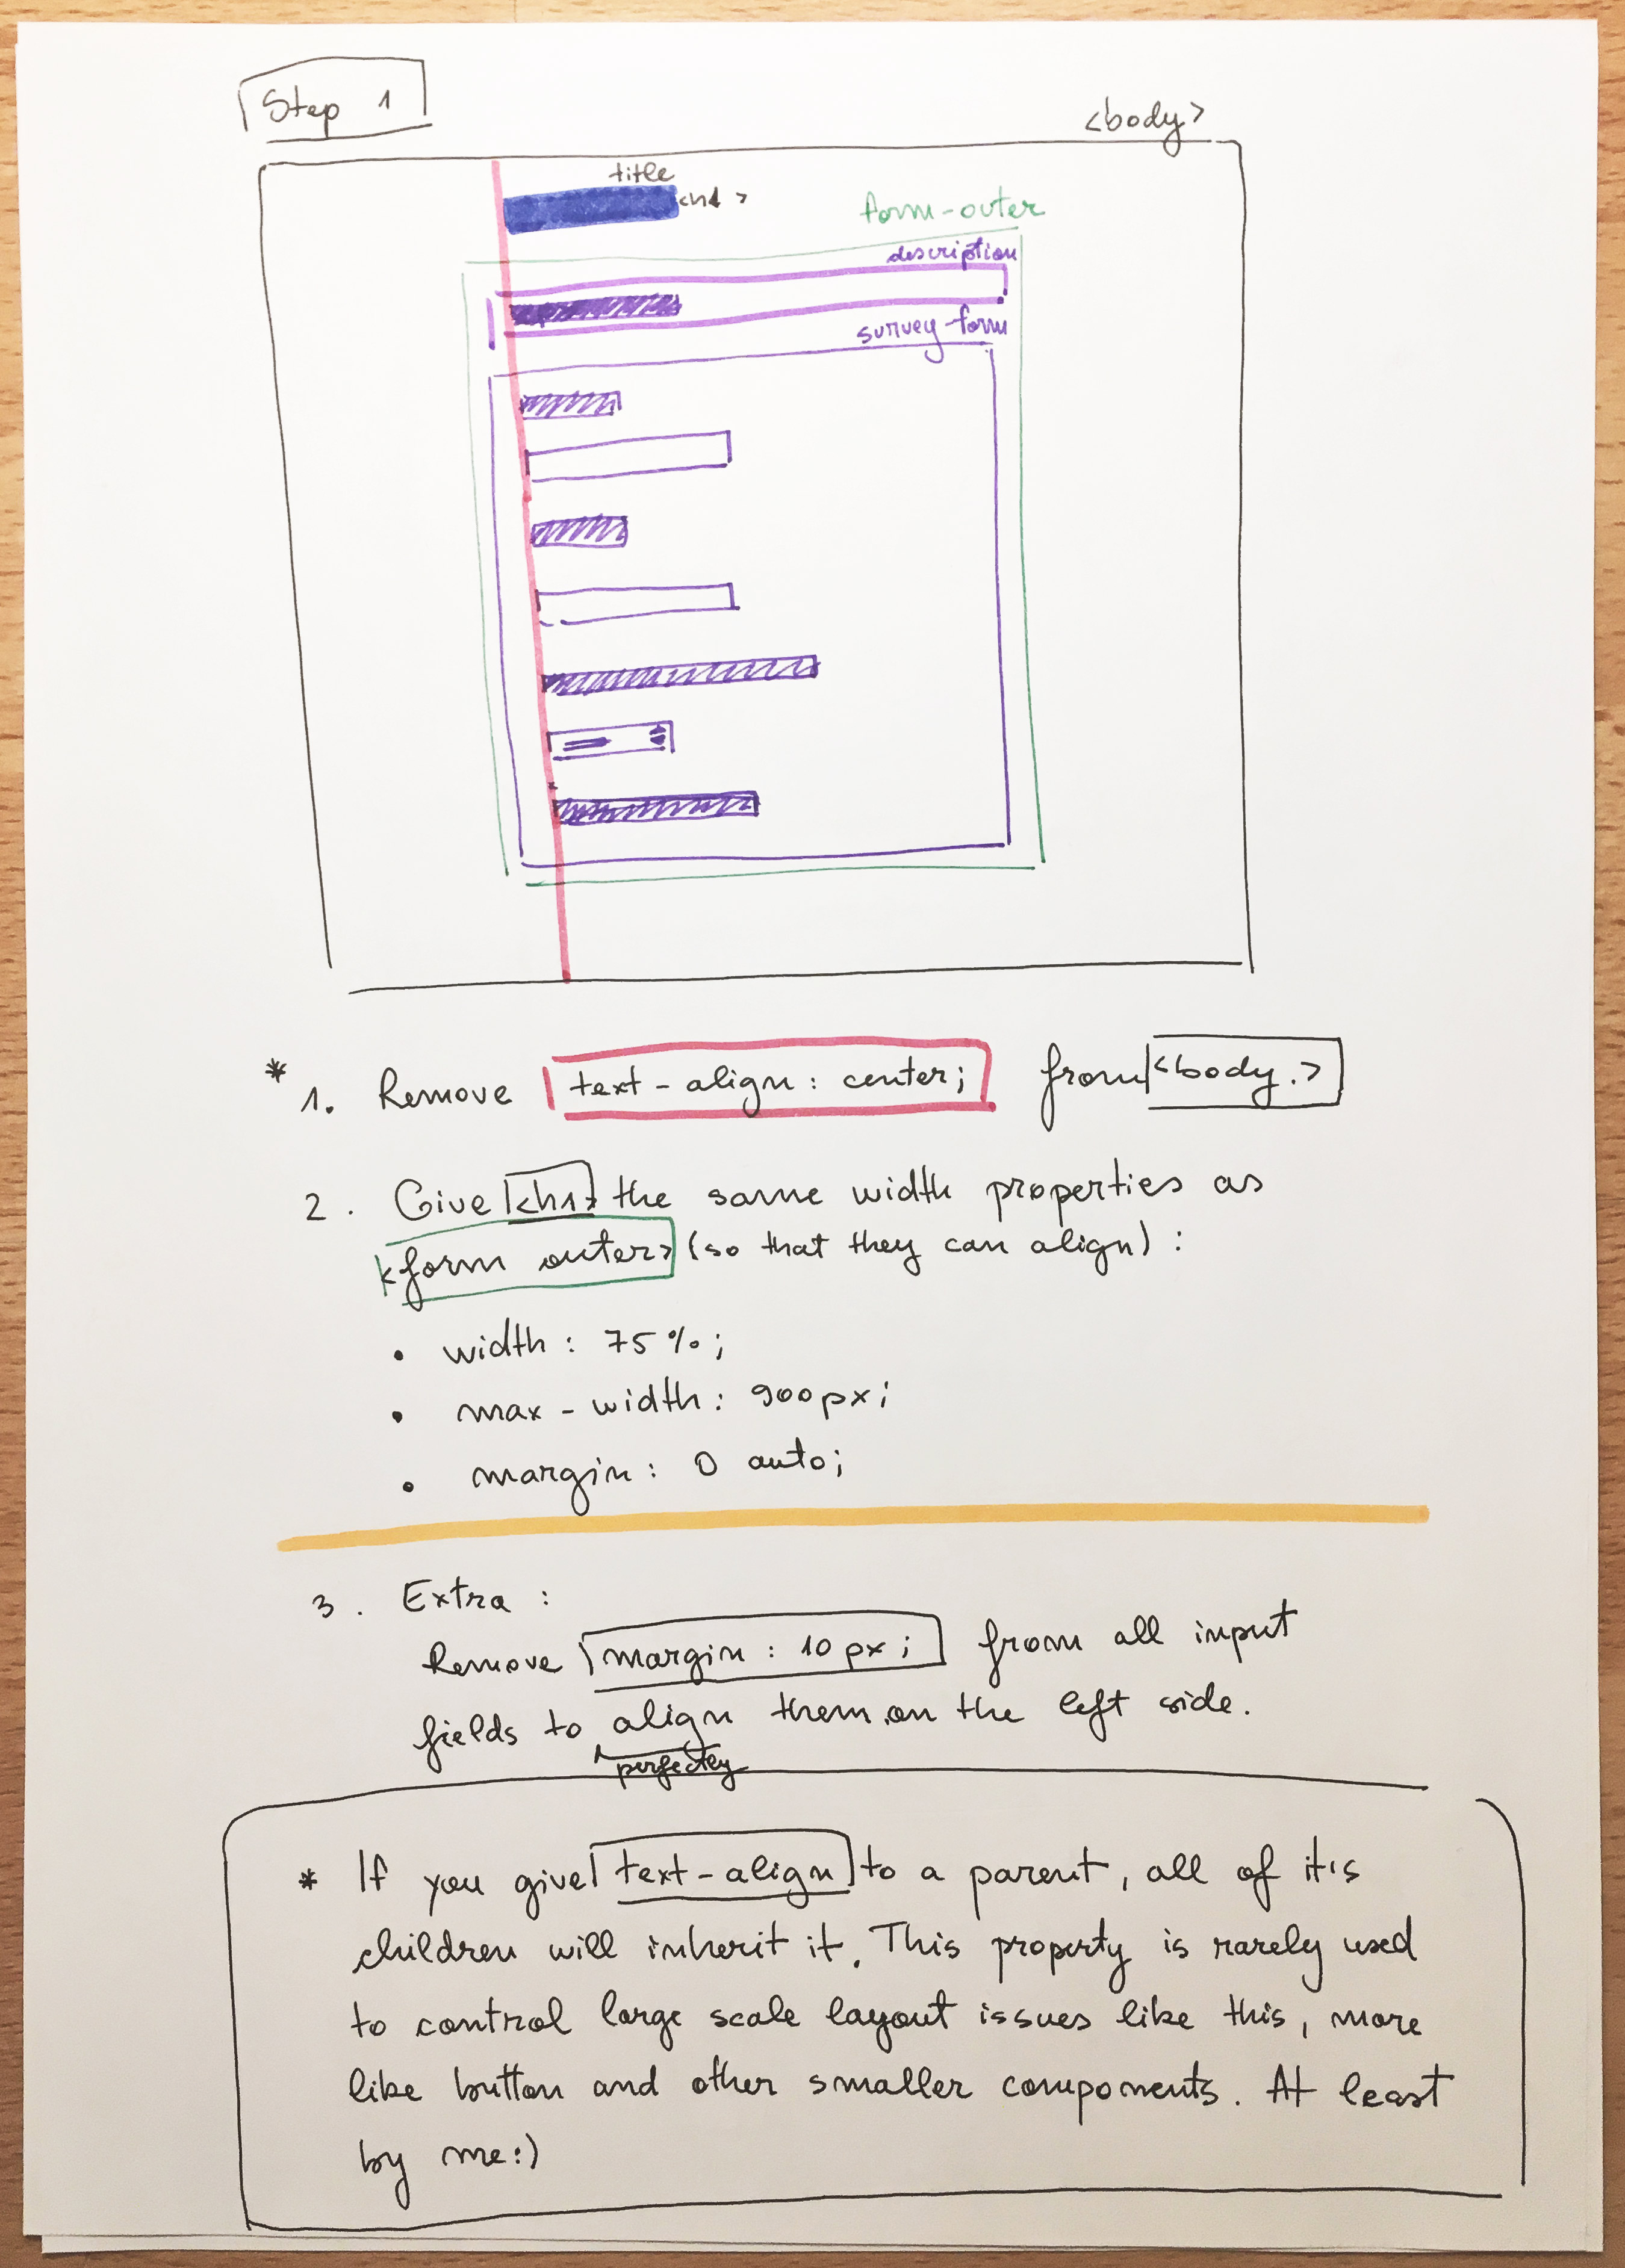 Step 1
<body>
title
<h1>
form-outer
description
survey-form
* 1. Remove text-align: center; from <body.>
2. Give <h1> the same width properties as
<form outer> (so that they can align):
• width: 75%;
• max-width: 900px;
• margin: 0 auto;
3. Extra:
Remove margin: 10px; from all input
fields to align them on the left side.
perfectly
* If you give text-align to a parent, all of it's
children will inherit it. This property is rarely used
to control large scale layout issues like this, more
like button and other smaller components. At least
by me:)